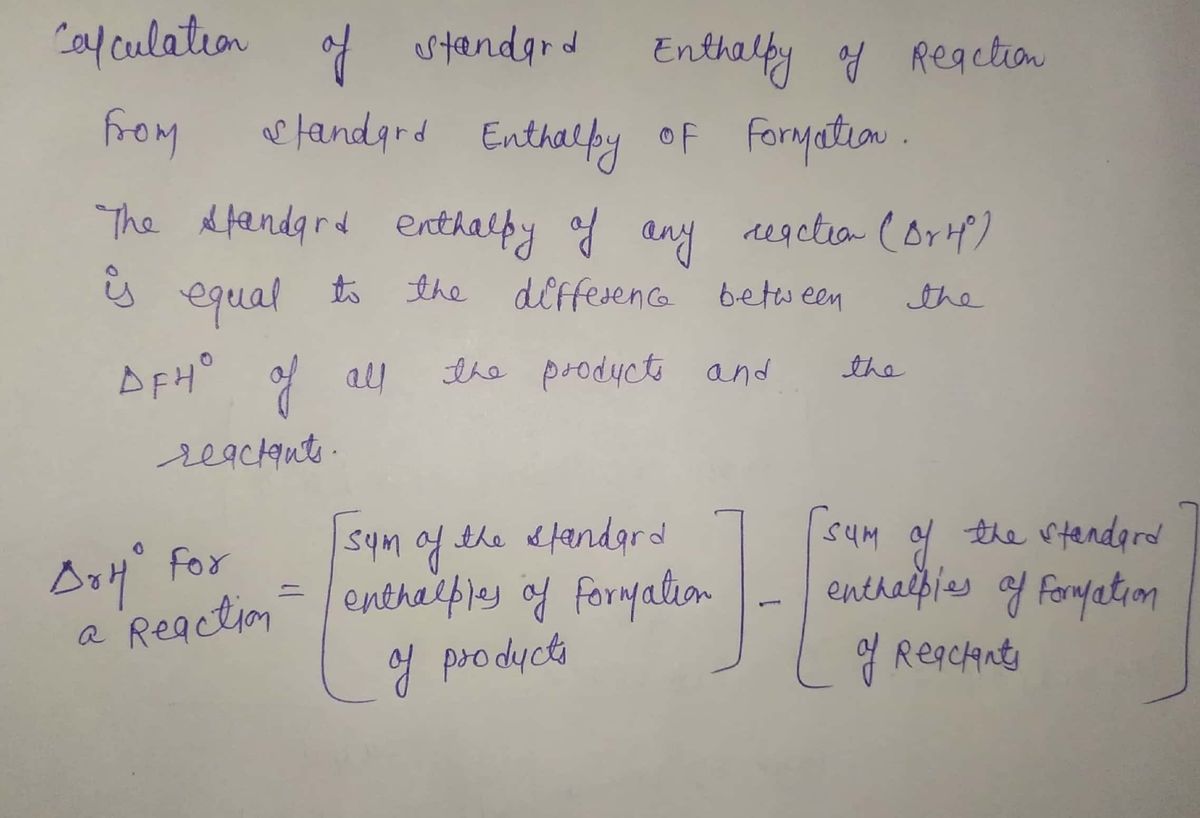 Calculation of standard Enthalpy of Reaction
from standard Enthalpy of Formation.
The standard enthalpy of any reaction (ΔrH°)
is equal to the difference between the
ΔFH° of all the products and the
reactants.
ΔrH° For a Reaction = [sum of the standard enthalpies of Formation of products] - [sum of the standard enthalpies of Formation of Reactants]